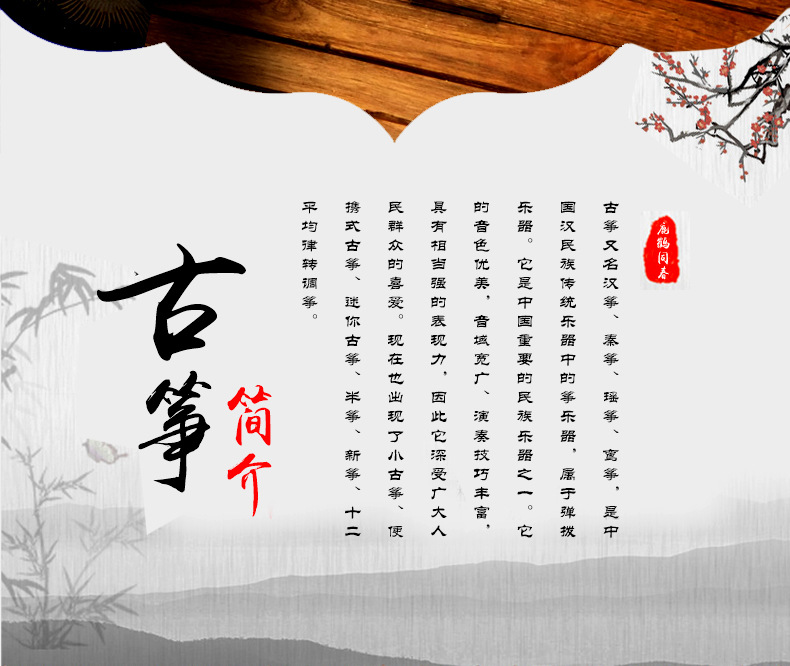 鹿鹤同春
古筝又名汉筝、秦筝、瑶筝、鸾筝，是中
国汉民族传统乐器中的筝乐器，属于弹拨
乐器。它是中国重要的民族乐器之一。它
的音色优美，音域宽广、演奏技巧丰富，
具有相当强的表现力，因此它深受广大人
民群众的喜爱。现在也出现了小古筝、便
携式古筝、迷你古筝、半筝、新筝、十二
平均律转调筝。
古筝
简介